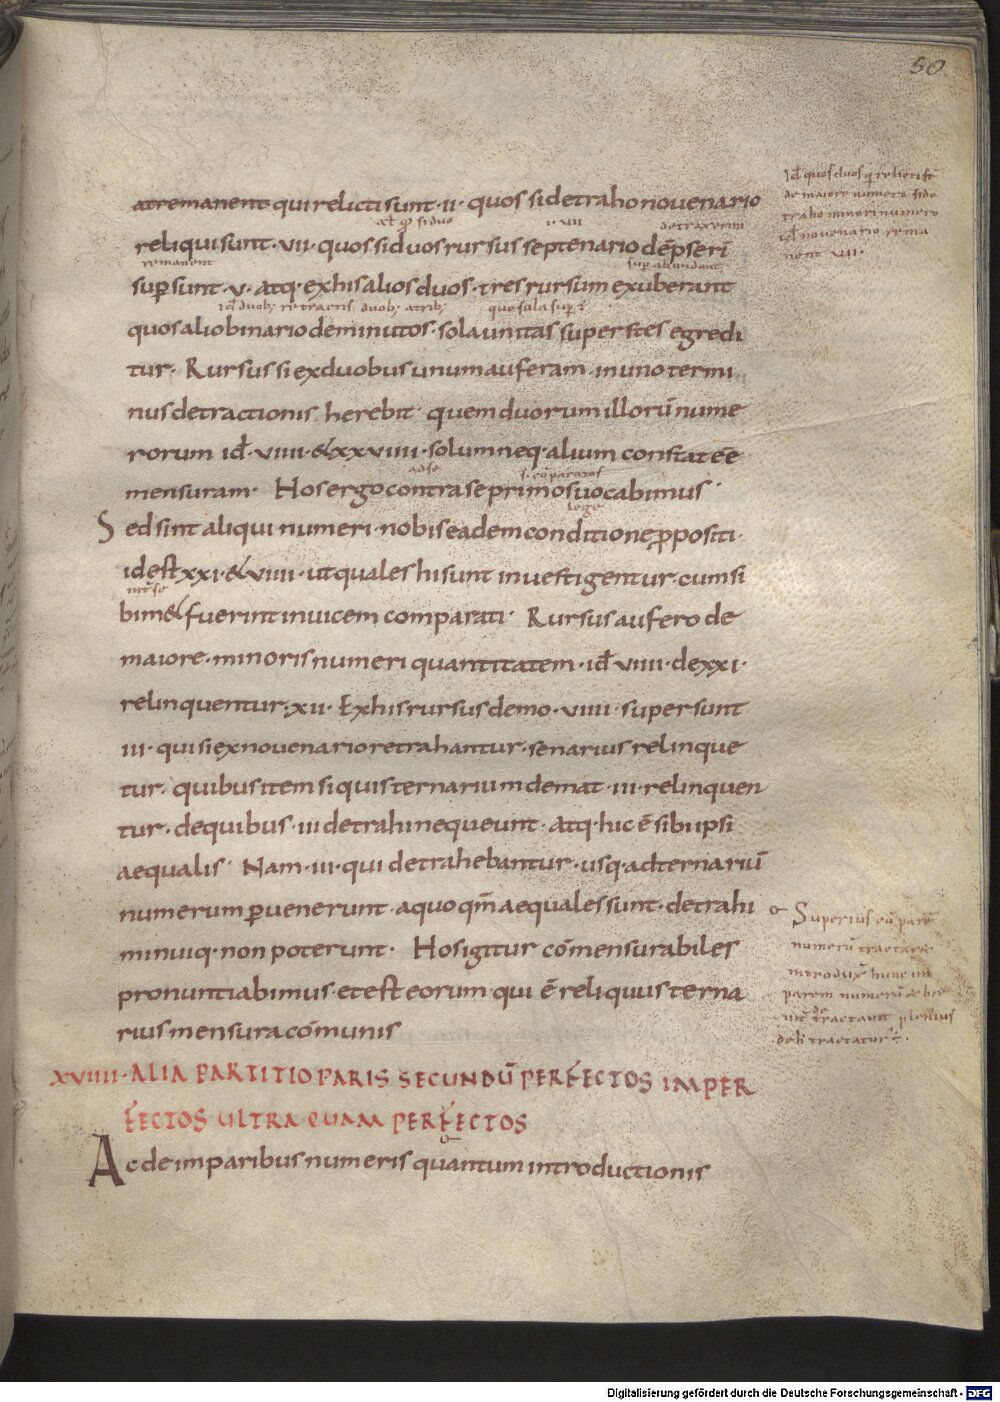 50
atremanent qui relicti sunt · ii · quos si detraho novenario
reliqui sunt · vii · quos si duos rursus septenario dēpserī
remanent
sup sunt · v · atq · ex his alios duos · tres rursum exuberant
quos alio binario deminutos · sola unitas superstes egredi
tur · Rursus si ex duobus unum auferam · in uno termi
nus detractionis herebit · quem duorum illorū nume
rorum id · viiii · & xxviiii · solum neq · alium constat eē
mensuram · Hos ergo contra se primos vocabimus ·
Sed sint aliqui numeri · nobis eadem conditione ppositi ·
id est xxi · & viiii · ut quales hi sunt investigentur · cum si
bim& fuerint invicem comparati · Rursus aufero de
maiore · minoris numeri quantitatem · id viiii · de xxi ·
relinquentur · xii · Ex his rursus demo · viiii · supersunt
iii · qui si ex novenario retrahantur · senarius relinque
tur · quibus item si quis ternarium demat · iii · relinquen
tur · de quibus · iii detrahi nequeunt · atq · hic ē sibi ipsi
aequalis · Nam · iii · qui detrahebantur · usq · ad ternariū
numerum pvenerunt · a quo qm̄ aequales sunt · detrahi
minuiq · non poterunt · Hos igitur cōmensurabiles
pronuntiabimus · et est eorum · qui ē reliquus terna
rius mensura cōmunis
xviiii · ALIA PARTITIO PARIS SECUNDŪ PERFECTOS IMPER
FECTOS ULTRA QUAM PERFECTOS
Ac de imparibus numeris quantum introductionis
id quos duos q relicti st
de maiore numero si de
traho minori numero
id novenario rema
nent vii ·
Superius cū parē
numerū tractare
Digitalisierung gefördert durch die Deutsche Forschungsgemeinschaft - DFG